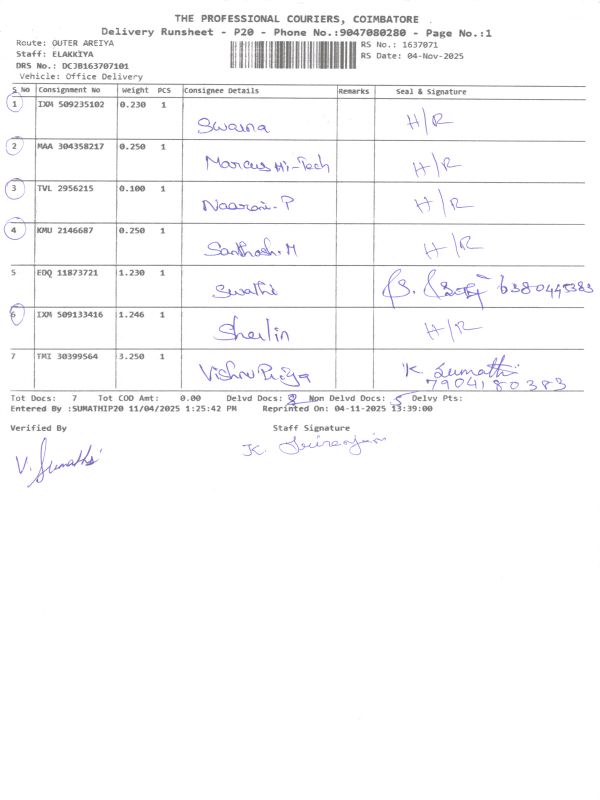 THE PROFESSIONAL COURIERS, COIMBATORE
Delivery Runsheet - P20 - Phone No.:9047080280 - Page No.:1
Route: OUTER AREIYA RS No.: 1637071
Staff: ELAKKIYA RS Date: 04-Nov-2025
DRS No.: DCJB163707101
Vehicle: Office Delivery
S No Consignment No Weight PCS Consignee Details Remarks Seal & Signature
1 IXM 509235102 0.230 1
Swarna H/R
2 MAA 304358217 0.250 1
Marcus Hi-Tech H/R
3 TVL 2956215 0.100 1
Naarani. P H/R
4 KMU 2146687 0.250 1
Santhosh. M H/R
5 EDQ 11873721 1.230 1
Swathi 6380445383
6 IXM 509133416 1.246 1
Sherlin H/R
7 TMI 30399564 3.250 1
Vishnu Priya K. Sumathi
7904180383
Tot Docs: 7 Tot COD Amt: 0.00 Delvd Docs: 2 Non Delvd Docs: 5 Delvy Pts:
Entered By :SUMATHIP20 11/04/2025 1:25:42 PM Reprinted On: 04-11-2025 13:39:00
Verified By Staff Signature
V. Sumathi K.